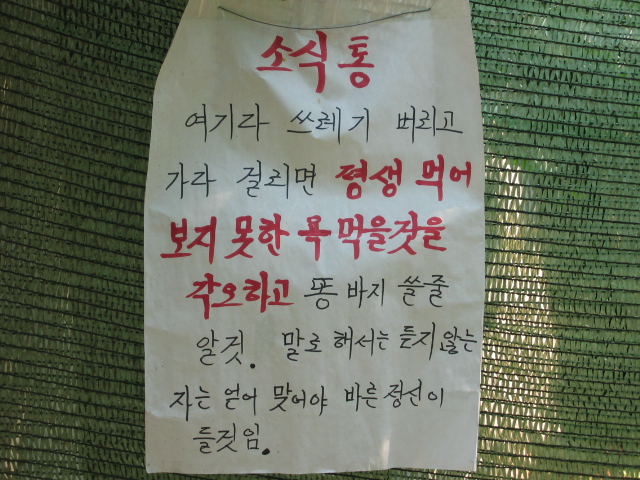 소식통
여기라 쓰레기 버리고
가라 걸리면 평생 먹어
보지 못한 욕 먹을갓을
각오하고 똥바지 쓸줄
알것. 말로 해서는 듣지않는
자는 얻어 맞어야 바른정신이
들것임.